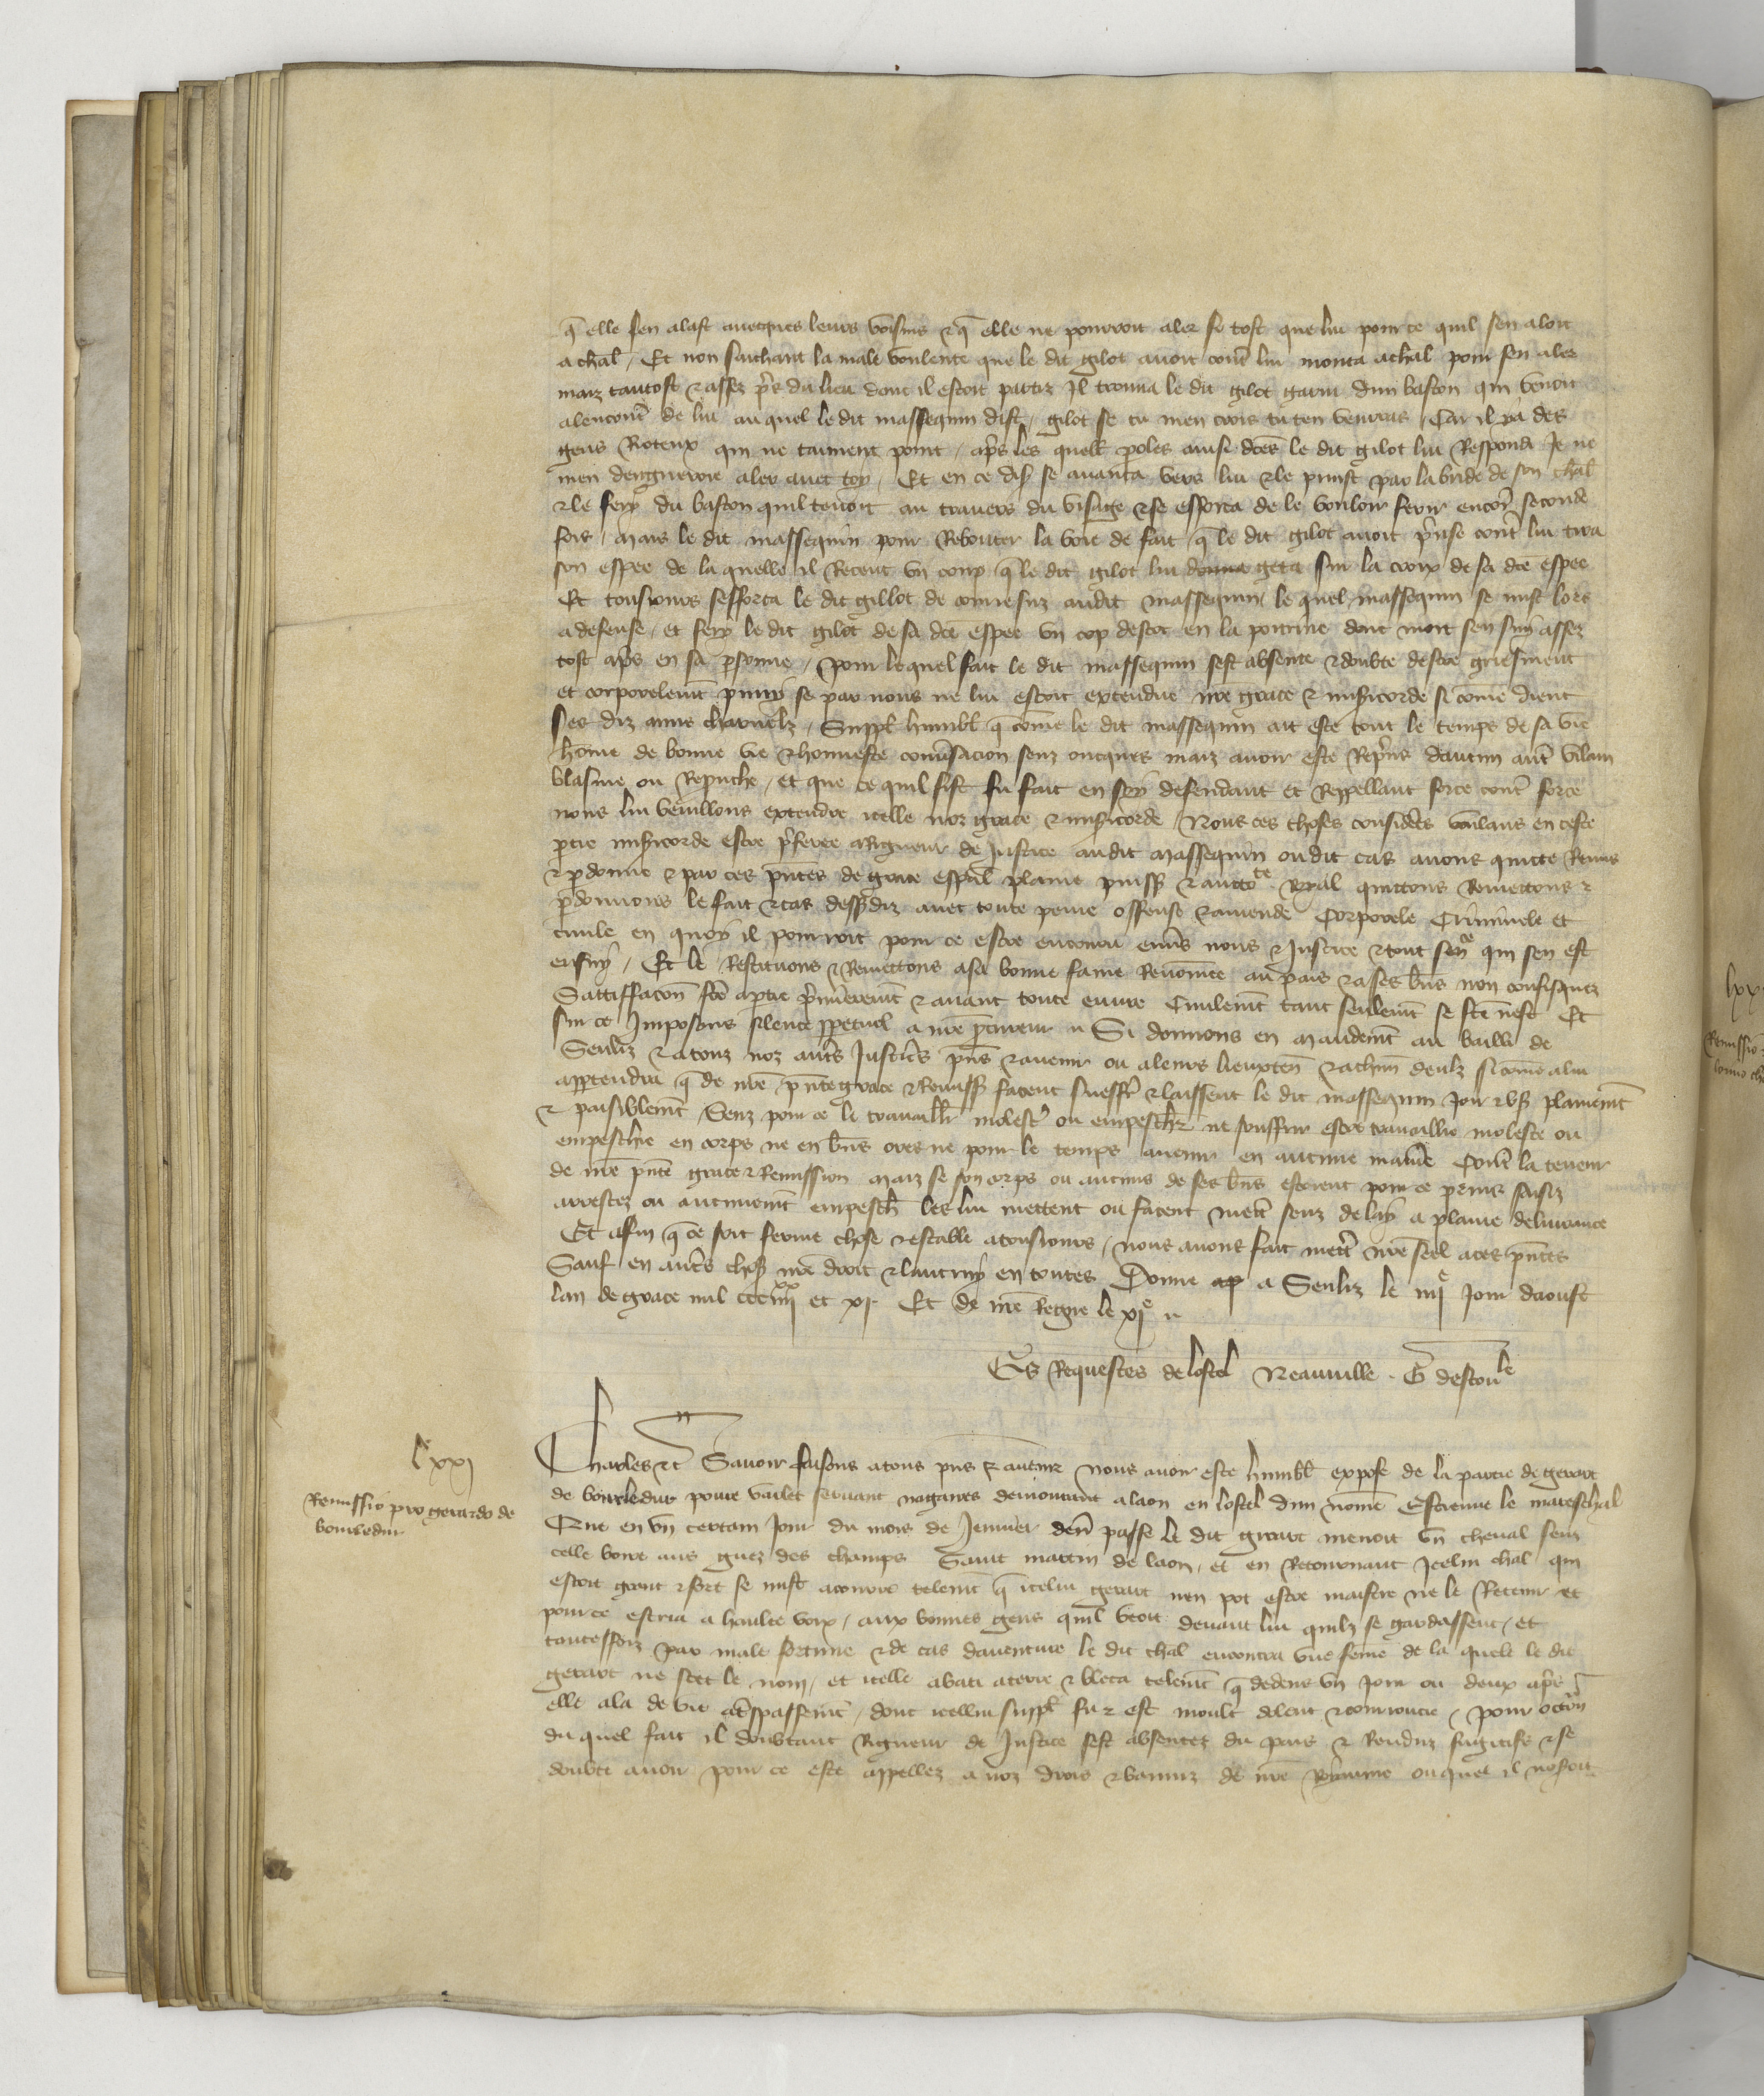 q̄ elle sen alast auecques leurs voisins & q̄ elle ne pourroit aler si tost que lui pour ce quil sen aloit
a chal̄ / Et non saichant la male voulente que le dit gilot auoit cont̄ lui monta a chal̄ pour sen aler
maiz tantost & assez pr̄s du lieu dont il estoit partiz Il trouua le dit gilot garni dun baston qui venoit
alencont̄ de lui au quel le dit massequin dist / gilot se tu men crois tu ten venrras / Car il va des
gens Roteux qui ne taiment point / apr̄s les quell̄ p̄oles ainsi dc̄es le dit gilot lui Respondi Je ne
men dengneroie aler auec toy / Et en ce dis̄ se auanca vers lui & le prinst par la bride de son chal̄
& le fery du baston quil tenoit au trauers du visage & se efforca de le vouloir ferir encor̄ seconde
fois / Mais le dit massequin pour Rebouter la voie de fait q̄ le dit gilot auoit pr̄nse cont̄ lui tira
son espee de la quelle il Receut vn coup q̄ le dit gilot lui donna geta sur la croix de sa dc̄e espee
Et tousiours sefforca le dit gillot de courir suz audit massequin / le quel massequin se mist lors
a defense / et fery le dit gilot de sa dc̄e espee vn cop destoc en la poitrine dont mort sen suy assez
tost apr̄s en sa p̄sonne / Pour lequel fait le dit massequin sest absente & doubte destre griefment
et corporelem̄t puny se par nous ne lui estoit extendue nr̄e grace & mis̄icorde si come dient
ses diz amis charnelz / Suppl̄ humbl̄ q̄ come le dit massequin ait este tout le temps de sa vie
home de bonne vie & honneste conūsacion senz oncques maiz auoir este Repr̄ns daucun aut̄ vilain
blasme ou Reprouche / et que ce quil fist fu fait en soy defendant et Reppellant force cont̄ force
nous lui veuillons extendre icelle noz grace & mis̄icorde / Nous ces choses considerēs voulans en ceste
p̄tie mis̄icorde estre pr̄feree a Rigueur de Justice audit Massequin oudit cas auons quitte Remis
& p̄donne & par ces pn̄tes de grace esp̄al̄ plaine puiss̄ & auctorte Royal quittons Remettons &
p̄donnons le fait & cas dessusdiz auec toute peine offense & amende Corporele Criminele et
ciuile en quoy il pourroit pour ce estre encouru enūs nous & Justice & tout ce qui sen est
ensuy / Et le Restituons & Remettons a sa bonne fame Renom̄ee au pais & a ses bn̄s non confisquez
Satisfacōn fc̄e a p̄tie pr̄mierem̄t & auant toute euure Ciuilem̄t tant seulem̄t se fc̄e nest Et
sur ce Imposons silence p̄petuel a nr̄e p̄cureur // Si donnons en Mandem̄t au bailli de
Senliz & a touz noz aut̄s Justic̄s pn̄s & auenir ou a leurs lieuxten̄ & a chun̄ deulz si come a lui
appartendra q̄ de nr̄e pn̄te grace & Remiss̄ facent sueffr̄ & laissent le dit massequin Joir & vs̄ plainem̄t
& paisiblem̄t senz pour ce le trauaill̄ molest̄ ou empesch̄ ne souffrir estre trauaillie moleste ou
empeschie en corps ne en bn̄s ores ne pour le temps auenir en aucune manie Cont̄ la teneur
de nr̄e pn̄te grace & Remission Maiz se son corps ou aucuns de ses bn̄s estoient pour ce prins saisiz
arrestez ou aucunem̄t empesch̄ les lui mettent ou facent mett̄ senz delay a plaine deliurance
Et afin q̄ ce soit ferme chose & estable a tousiours / nous auons fait mett̄ nr̄e seel a ces pn̄tes
Sauf en aut̄s chos̄ nr̄e droit & lautruy en toutes Donne ap a Senliz le iiije Jour daoust
lan de grace mil ccciiijxx et xj Et de nr̄e Regne le xje //
Es Requestes de lostel Neauuille . G destoule
lxxj
Remissio pro gerardo de
bourledur
Charles &c̄ Sauoir faisons a tous pn̄s & auenir nous auoir este humbl̄ expose de la partie de gerart
de bourledur poure varlet seruant nagaires demourant a laon en lostel dun nom̄e Estienne le mareschal
Que en vn certain Jour du mois de Januier derr̄ passe le dit gerart menoit vn cheual senz
celle boire aus guez des champs Saint martin de laon / et en Retournant Icelui chal̄ qui
estoit grant & fort se mist a courre telem̄t q̄ icelui gerart nen pot estre maistre ne le Retenir et
pour ce escria a haulte voix / aux bonnes gens quil veoit deuant lui quilz se gardassent / et
toutesfoiz par male fortune & de cas dauenture le dit chal̄ encontra vne feme de la quele le dit
gerart ne scet le nom / et icelle abati a terre & bleca telem̄t q̄ dedens vn Jour ou deux apr̄s
elle ala de vie a trespassem̄t / dont icellui suppl̄ fu & est moult dolent & courroucie / Pour occōn
du quel fait il doubtant Rigueur de Justice sest absentez du pais & Renduz fugitifs & se
doubte auoir pour ce este appellez a noz drois & banniz de nr̄e Royaume ouquel il noseroit